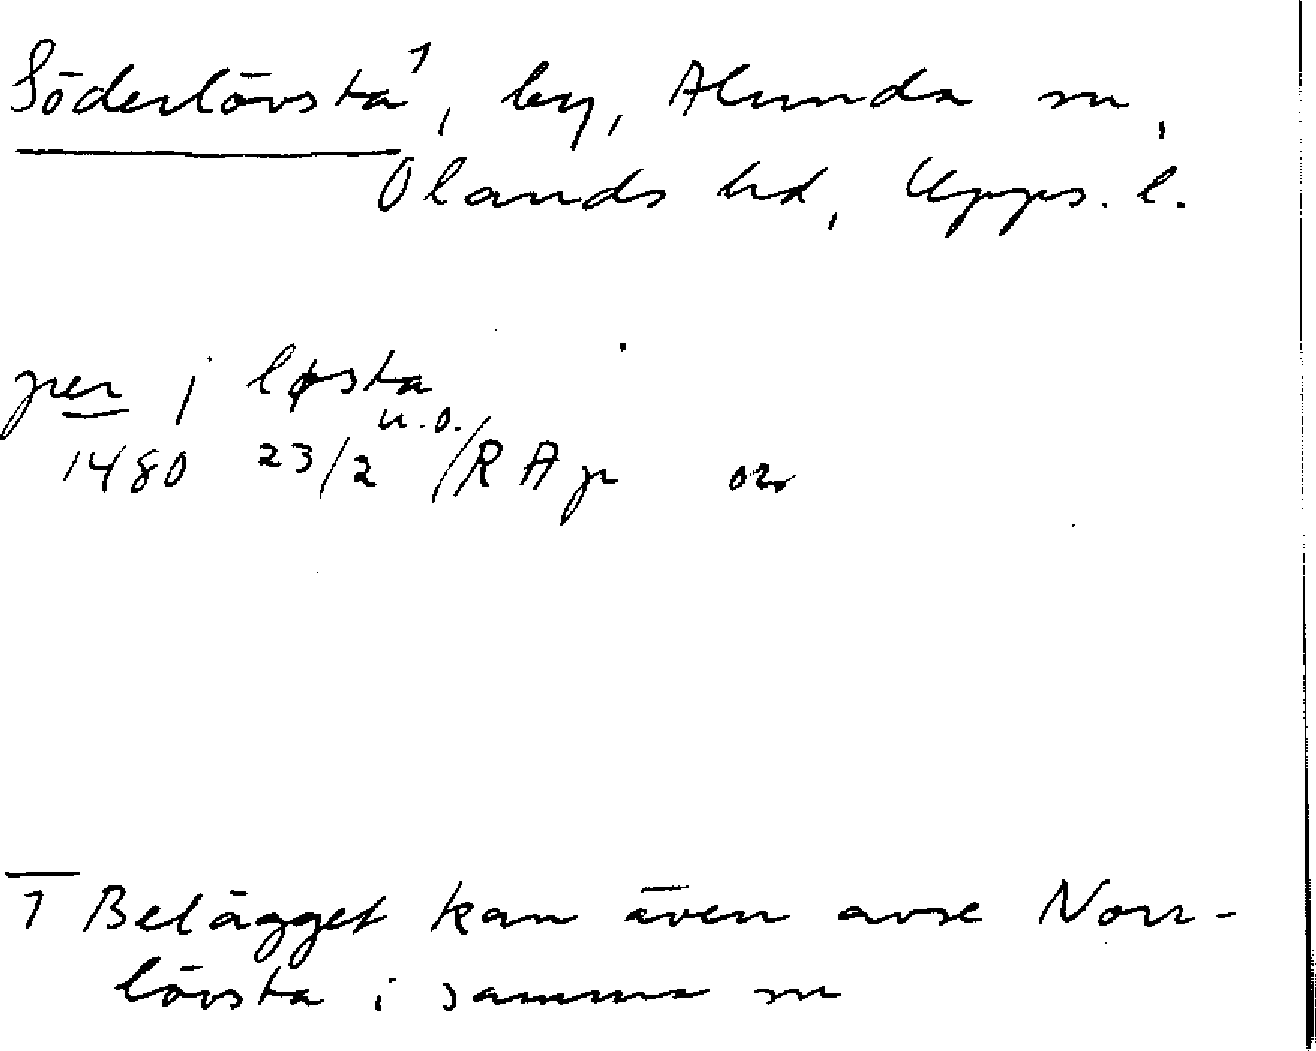 Söderlövsta¹, by, Alunda sn,
Olands hd, Upps. l.
per j løsta
u.o.
1480 23/2 /RAp or
1 Belägget kan även avse Norr-
lövsta i samma sn